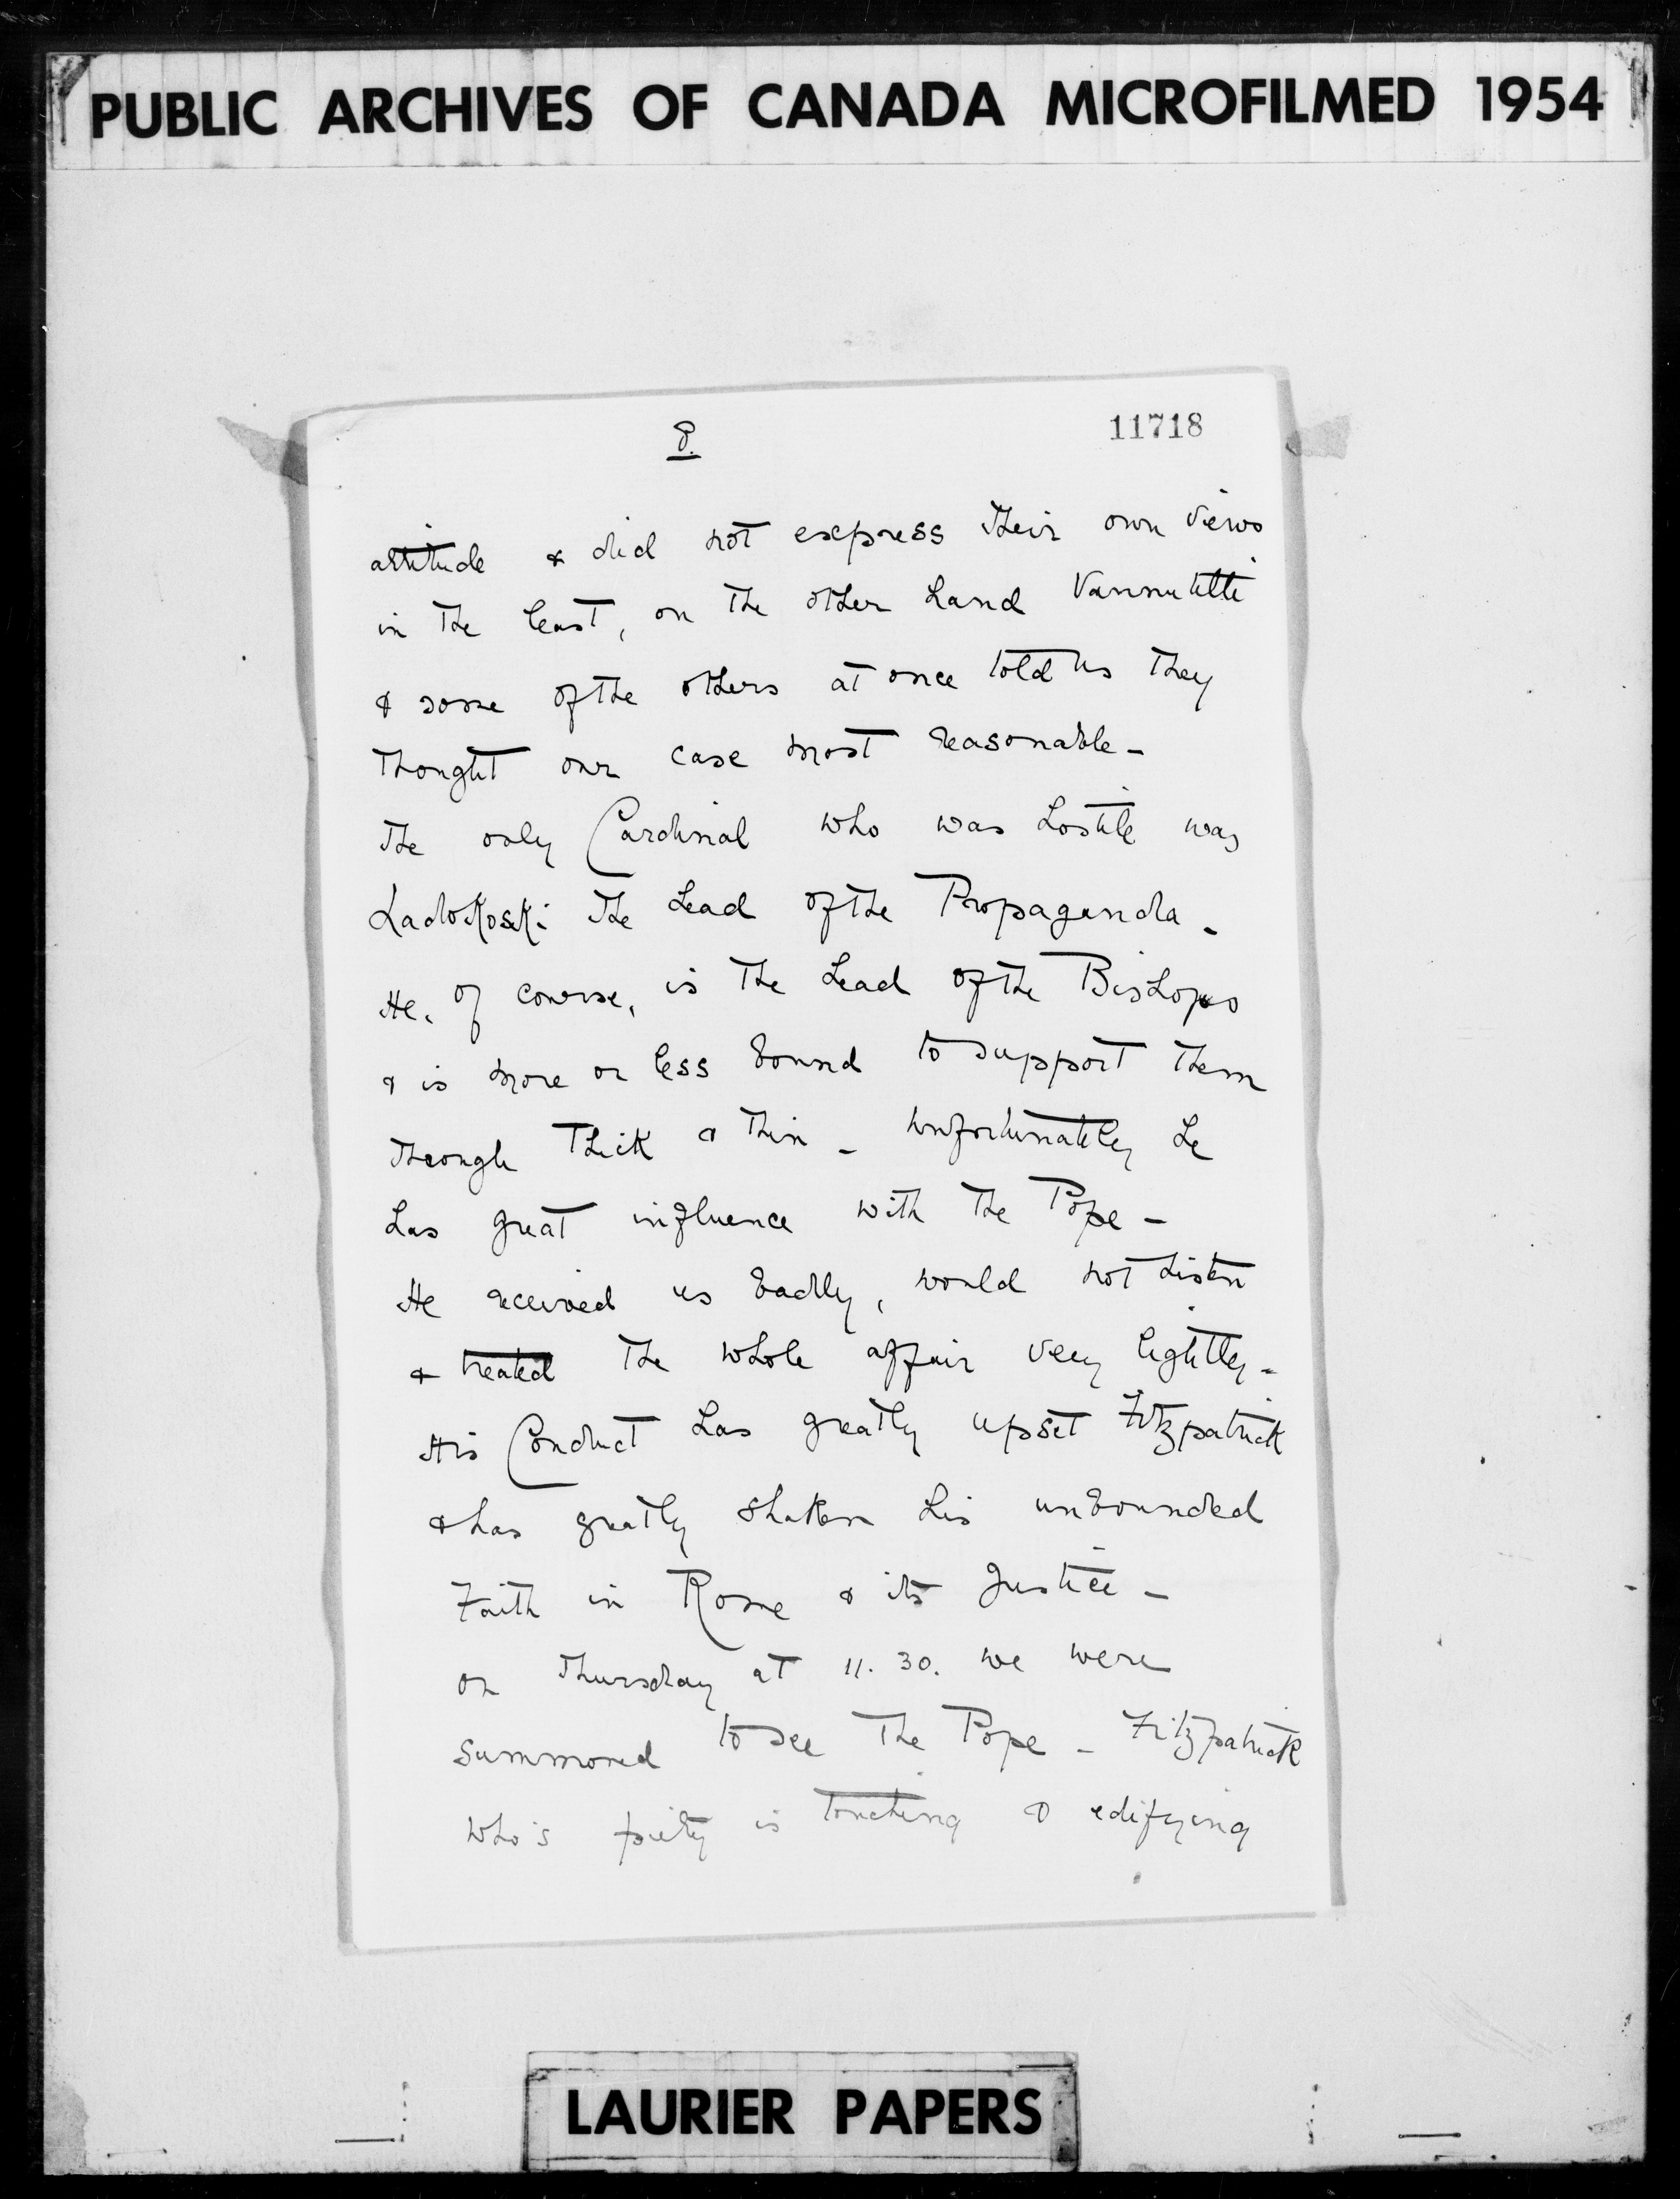 PUBLIC ARCHIVES OF CANADA MICROFILMED 1954
8.
11718
attitude & did not express their own views
in the least, on the other hand Vannutelli
& some of the others at once told us they
thought our case most reasonable -
The only Cardinal who was hostile was
Ladokoski the head of the Propaganda -
He, of course, is the head of the Bishops
& is more or less bound to support them
through Thick & Thin - unfortunately he
has great influence with the Pope -
He received us badly, would not listen
& treated the whole affair very lightly -
His Conduct has greatly upset Fitzpatrick
& has greatly shaken his unbounded
Faith in Rome & its Justice -
on Thursday at 11.30. we were
summoned to see The Pope - Fitzpatrick
who's piety is touching & edifying
LAURIER PAPERS